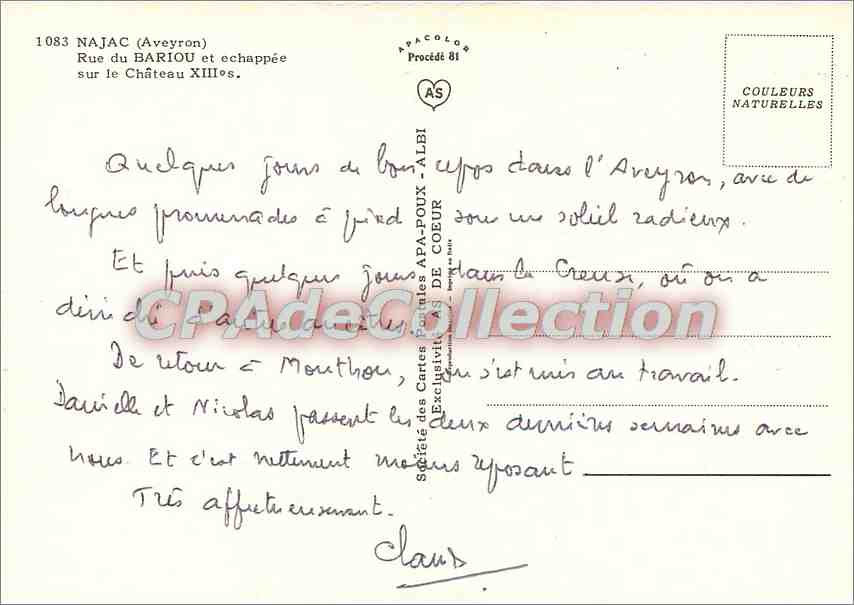 1083 NAJAC (Aveyron)
Rue du BARIOU et echappée
sur le Château XIIIºs.
APACOLOR
Procédé 81
AS
COULEURS
NATURELLES
Quelques jours de bon repos dans l'Aveyron, avec de
longues promenades à pied sous un soleil radieux.
Et puis quelques jours dans la Creuse, où on a
déniché d'autres ancêtres.
De retour à Monthou, on s'est mis au travail.
Danielle et Nicolas passent les deux dernières semaines avec
nous. Et c'est nettement moins reposant
Très affectueusement.
Société des Cartes Postales APA-POUX - ALBI
Exclusivité AS DE COEUR
Imprimé en Italie
CPAdeCollection